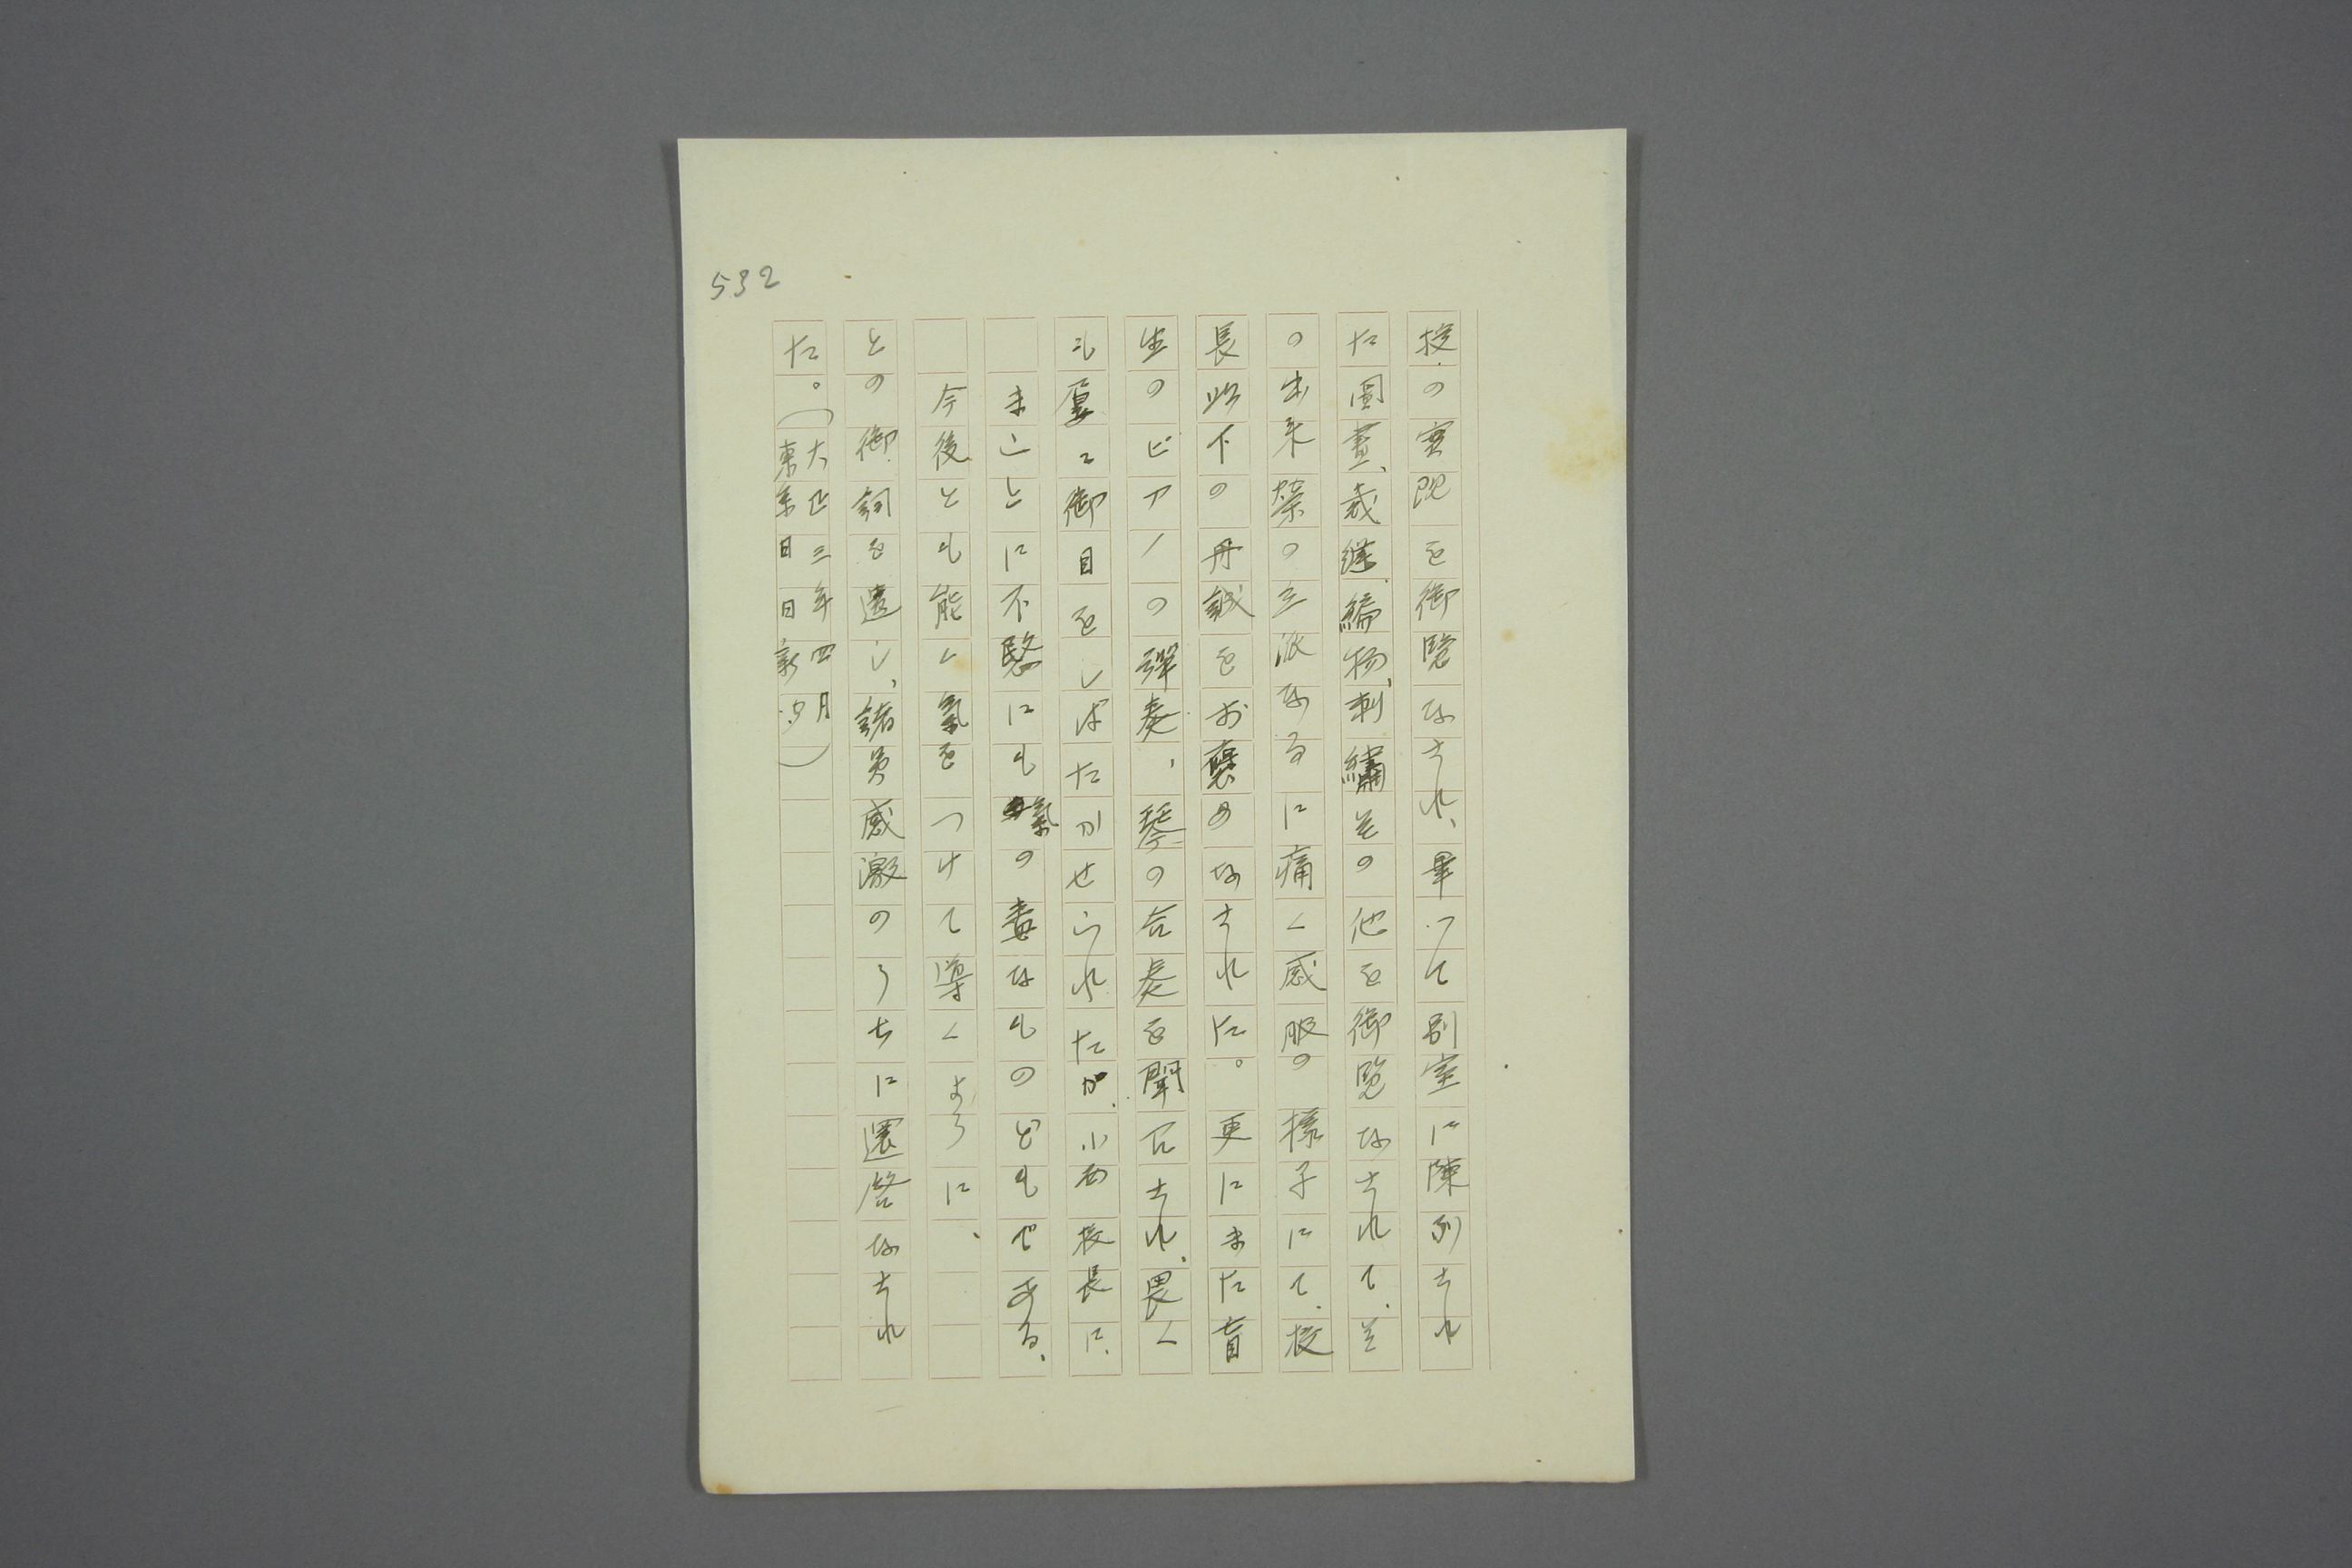 532
授の実況を御覧なされ、畢って別室に陳列され
た圖畫、裁縫、編物、刺繍その他を御覧なされて、そ
の出来栄の立派なるに痛く感服の様子にて、校
長以下の丹誠をお褒めなされた。更にまた盲
生のピアノの弾奏、琴の合奏を聞召され、畏く
も屡々御目をしばたかせられたが、小西校長に、
まことに不愍にも氣の毒なものどもである、
今後とも能く氣をつけて導くように、
との御詞を遺し、諸員感激のうちに還啓なされ
た。(大正三年四月
東京日日新夕)